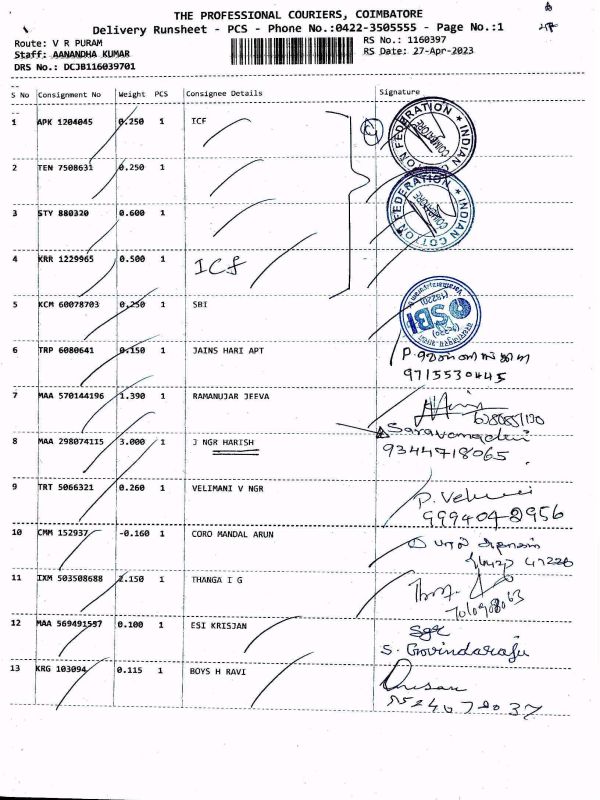 THE PROFESSIONAL COURIERS, COIMBATORE
Delivery Runsheet - PCS - Phone No.:0422-3505555 - Page No.:1
Route: V R PURAM RS No.: 1160397
Staff: AANANDHA KUMAR RS Date: 27-Apr-2023
DRS No.: DCJB116039701
S No Consignment No Weight PCS Consignee Details Signature
1 APK 1204045 0.250 1 ICF
INDIAN COTTON FEDERATION
COIMBATORE
2 TEN 7508631 0.250 1
3 STY 880320 0.600 1
INDIAN COTTON FEDERATION
COIMBATORE
4 KRR 1229965 0.500 1 ICF
5 KCM 60078703 0.250 1 SBI
SBI
6 TRP 6080641 0.150 1 JAINS HARI APT
9715530445
7 MAA 570144196 1.390 1 RAMANUJAR JEEVA
8 MAA 298074115 3.000 1 J NGR HARISH Saravanadevi
9344718065
9 TRT 5066321 0.260 1 VELIMANI V NGR
10 CMM 152937 -0.160 1 CORO MANDAL ARUN
11 IXM 503508688 2.150 1 THANGA I G
12 MAA 569491597 0.100 1 ESI KRISJAN
S. Govindaraju
13 KRG 103094 0.115 1 BOYS H RAVI